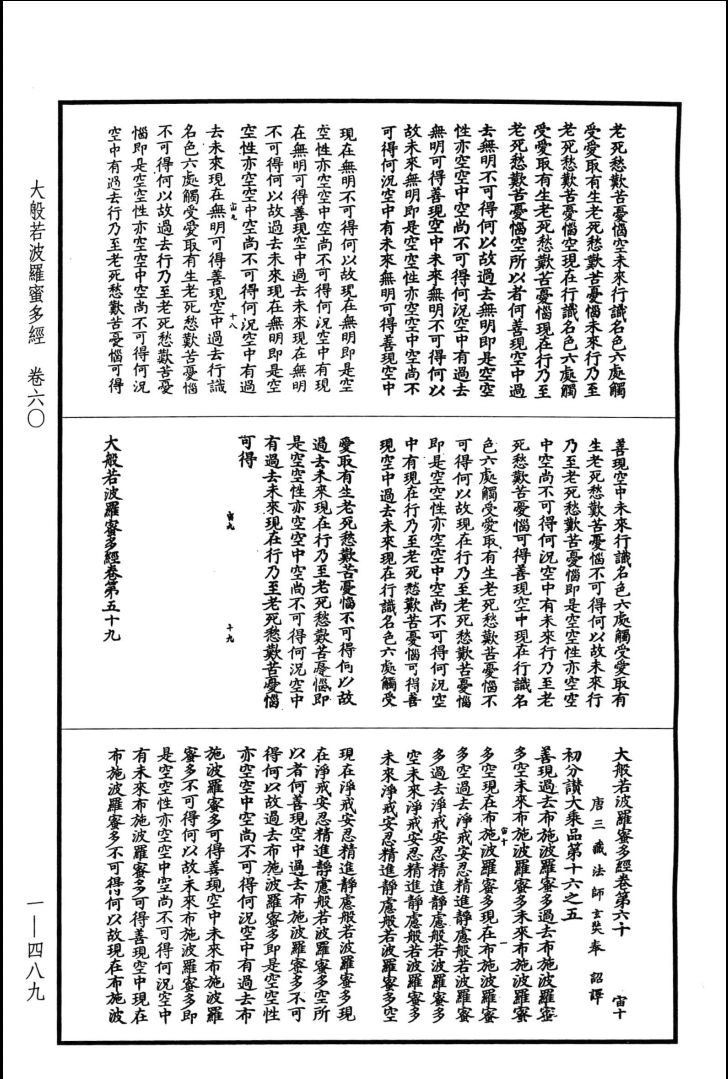 老死愁歎苦憂惱空未來行識名色六處觸
受愛取有生老死愁歎苦憂惱未來行乃至
老死愁歎苦憂惱空現在行識名色六處觸
受愛取有生老死愁歎苦憂惱現在行乃至
老死愁歎苦憂惱空所以者何善現空中過
去無明不可得何以故過去無明即是空空
性亦空空中空尚不可得何況空中有過去
無明可得善現空中未來無明不可得何以
故未來無明即是空空性亦空空中空尚不
可得何況空中有未來無明可得善現空中
現在無明不可得何以故現在無明即是空
空性亦空空中空尚不可得何況空中有現
在無明可得善現空中過去未來現在無明
不可得何以故過去未來現在無明即是空
空性亦空空中空尚不可得何況空中有過
宙九 十八
去未來現在無明可得善現空中過去行識
名色六處觸受愛取有生老死愁歎苦憂惱
不可得何以故過去行乃至老死愁歎苦憂
惱即是空空性亦空空中空尚不可得何況
空中有過去行乃至老死愁歎苦憂惱可得
善現空中未來行識名色六處觸受愛取有
生老死愁歎苦憂惱不可得何以故未來行
乃至老死愁歎苦憂惱即是空空性亦空空
中空尚不可得何況空中有未來行乃至老
死愁歎苦憂惱可得善現空中現在行識名
色六處觸受愛取有生老死愁歎苦憂惱不
可得何以故現在行乃至老死愁歎苦憂惱
即是空空性亦空空中空尚不可得何況空
中有現在行乃至老死愁歎苦憂惱可得善
現空中過去未來現在行識名色六處觸受
愛取有生老死愁歎苦憂惱不可得何以故
過去未來現在行乃至老死愁歎苦憂惱即
是空空性亦空空中空尚不可得何況空中
有過去未來現在行乃至老死愁歎苦憂惱
可得
宙九 十九
大般若波羅蜜多經卷第五十九
大般若波羅蜜多經卷第六十 宙十
唐三藏法師玄奘奉 詔譯
初分讚大乘品第十六之五
善現過去布施波羅蜜多過去布施波羅蜜
多空未來布施波羅蜜多未來布施波羅蜜
宙十 一
多空現在布施波羅蜜多現在布施波羅蜜
多空過去淨戒安忍精進靜慮般若波羅蜜
多過去淨戒安忍精進靜慮般若波羅蜜多
空未來淨戒安忍精進靜慮般若波羅蜜多
未來淨戒安忍精進靜慮般若波羅蜜多空
現在淨戒安忍精進靜慮般若波羅蜜多現
在淨戒安忍精進靜慮般若波羅蜜多空所
以者何善現空中過去布施波羅蜜多不可
得何以故過去布施波羅蜜多即是空空性
亦空空中空尚不可得何況空中有過去布
施波羅蜜多可得善現空中未來布施波羅
蜜多不可得何以故未來布施波羅蜜多即
是空空性亦空空中空尚不可得何況空中
有未來布施波羅蜜多可得善現空中現在
布施波羅蜜多不可得何以故現在布施波
大般若波羅蜜多經 卷六〇
一—四八九